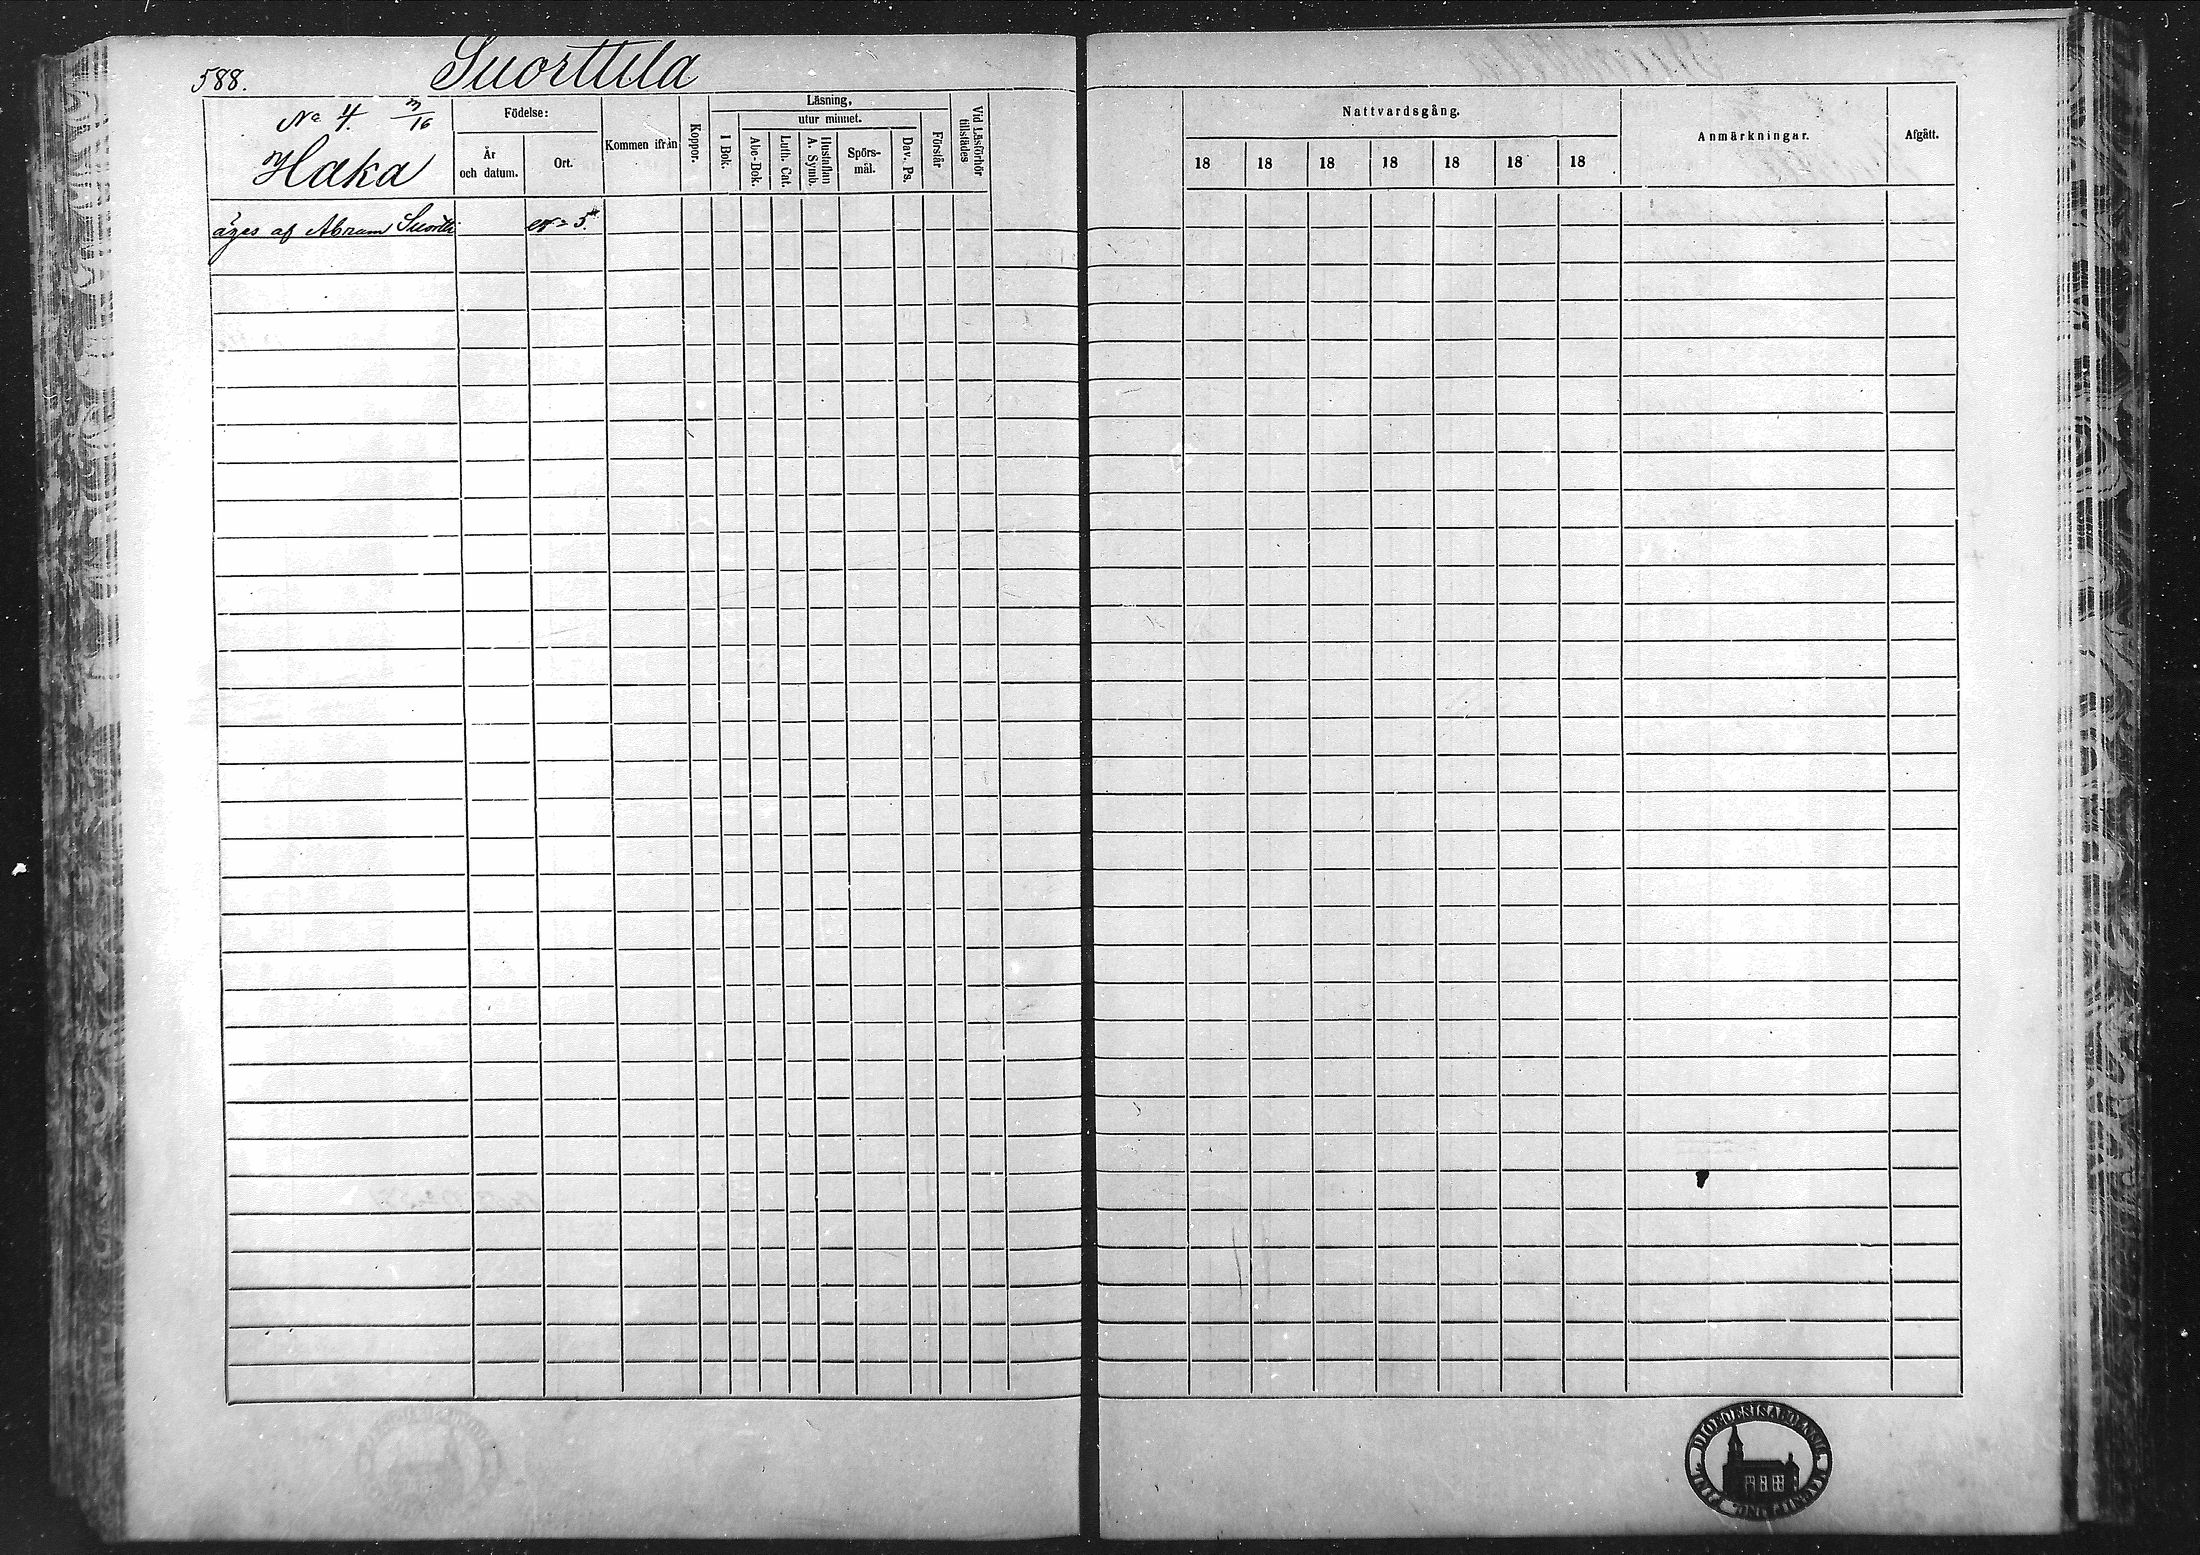 588. Suorttila
No 4. m/16
Haka
Födelse:
År
och datum.
Ort.
Kommen ifrån
Koppor.
Läsning,
I Bok.
utur minnet.
Abc-Bok.
Luth. Cat.
Hustaflan
A. Symb.
Spörs-
mål.
Dav. Ps.
Förstår
Vid Läsförhör
tillstädes
Nattvardsgång.
18 18 18 18 18 18 18
Anmärkningar.
Afgått.
äges af Abram Suortti
5.